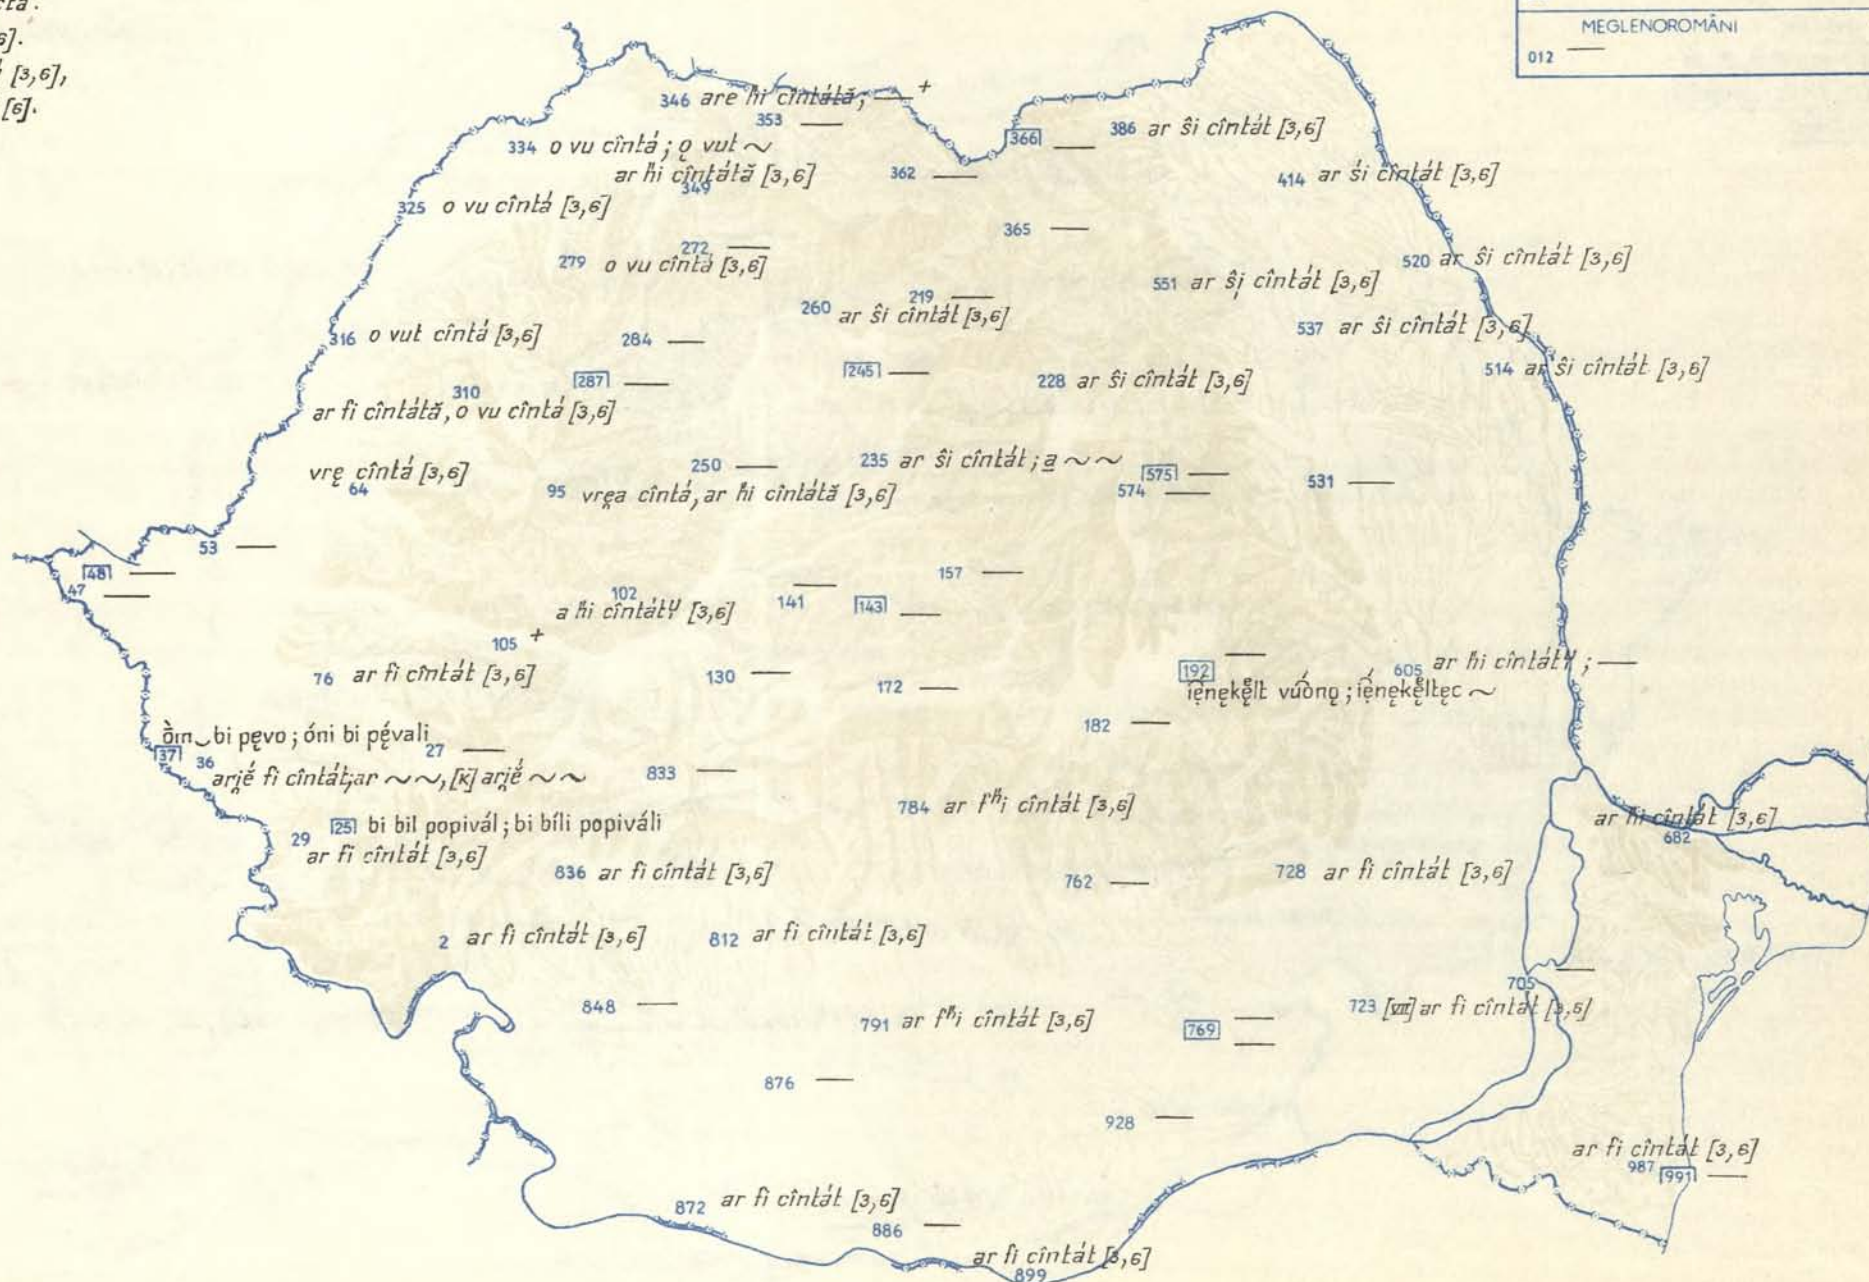 6].
[3,6],
[6].
MEGLENOROMÂNI
012 —
346 are h́i cîntátă; — +
353 —
334 o vu cîntá; o̯ vut ~
ar h́i cîntátă [3,6]
349
362 —
366 —
386 ar ŝi cîntát [3,6]
414 ar śi cîntát [3,6]
325 o vu cîntá [3,6]
365 —
272 —
279 o vu cîntá [3,6]
520 ar ŝi cîntát [3,6]
551 ar ŝi̦ cîntát [3,6]
219 —
260 ar ŝi cîntát [3,6]
537 ar ŝi cîntát [3,6]
316 o vut cîntá [3,6]
284 —
514 ar ŝi cîntát [3,6]
287 —
245 —
228 ar ŝi cîntát [3,6]
310
ar fi cîntátă, o vu cîntá [3,6]
vrę cîntá [3,6]
64
250 —
235 ar ŝi cîntát; a̲ ~ ~
575 —
574 —
531 —
95 vrea̯ cîntá, ar h́i cîntátă [3,6]
53 —
48 —
47 —
157 —
102
a h́i cîntátᵘ̆ [3,6]
141 —
143 —
105 +
76 ar fi cîntát [3,6]
130 —
172 —
192 —
605 ar h́i cîntátᵘ̆; —
182 —
bi pẹvo; óni bi pẹ́vali
37
36
27 —
fi cîntát; ar ~ ~, [K] ~ ~
833 —
784 ar fʰi cîntát [3,6]
ar h́i cîntát [3,6]
682
25 bi bil popivál; bi bíli popiváli
29
ar fi cîntát [3,6]
836 ar fi cîntát [3,6]
762 —
728 ar fi cîntát [3,6]
2 ar fi cîntát [3,6]
812 ar fi cîntát [3,6]
705 —
848 —
791 ar fʰi cîntát [3,6]
769 —
—
723 [VII] ar fi cîntát [3,6]
876 —
928 —
ar fi cîntát [3,6]
987
991 —
872 ar fi cîntát [3,6]
886 —
ar fi cîntát [3,6]
899